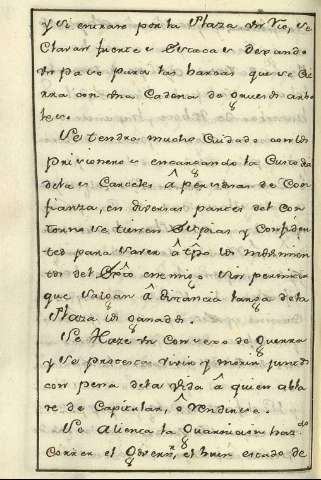 y si entrare por la Plaza un Rio, se
Clavan fuertes Estacas Dexando
un paso para las barcas que se Cie
rra con una Cadena de gruesos arbo
les.
Se tendra mucho Cuidado con los
prisioneros encargando la Custodia
de las Carceles â personas de Con
fianza, en diversas partes del Con
torno se tienen Espias y Confiden
tes para saver â tpô los
del enemigo. No permitir
que salgan â distancia larga de la
Plaza los ganados.
Se Haze un Consexo de Guerra
y se protesta vivir y morir juntos
con pena de la vida â quien abla
re de Capitular, ô rendirse.
Se Alienta la Guarnicion haz.do
Correr el Govern.r el buen estado de